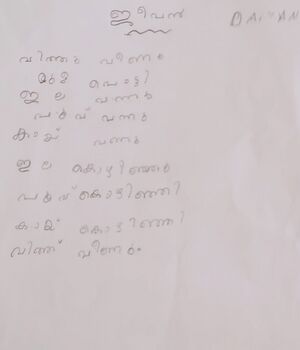 ജീവൻ
DAIVAN
വിത്തു വീണു
മുള പൊട്ടി
ഇല വന്നു
പൂവ് വന്നു
കായ് വന്നു
ഇല കൊഴിഞ്ഞു
പൂവ് കൊഴിഞ്ഞി
കായ് കൊഴിഞ്ഞി
വിത്ത് വീണു.